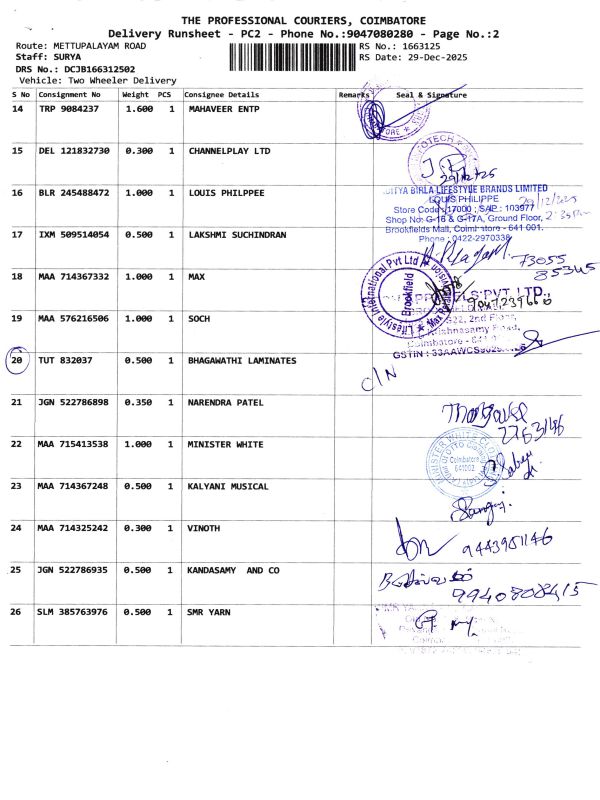 THE PROFESSIONAL COURIERS, COIMBATORE
Delivery Runsheet - PC2 - Phone No.:9047080280 - Page No.:2
Route: METTUPALAYAM ROAD
RS No.: 1663125
Staff: SURYA
RS Date: 29-Dec-2025
DRS No.: DCJB166312502
Vehicle: Two Wheeler Delivery
S No Consignment No Weight PCS Consignee Details Remarks Seal & Signature
14 TRP 9084237 1.600 1 MAHAVEER ENTP
15 DEL 121832730 0.300 1 CHANNELPLAY LTD
29/12/25
16 BLR 245488472 1.000 1 LOUIS PHILPPEE
ADITYA BIRLA LIFESTYLE BRANDS LIMITED
LOUIS PHILIPPE
Store Code: 17000 ; SAP : 103977
Shop No: G-16 & G-17A, Ground Floor,
Brookfields Mall, Coimbatore - 641 001.
Phone : 0422-2970338
17 IXM 509514054 0.500 1 LAKSHMI SUCHINDRAN
73055
85345
18 MAA 714367332 1.000 1 MAX
Lifestyle International Pvt Ltd
Brookfield
19 MAA 576216506 1.000 1 SOCH
2nd Floor,
Krishnasamy Road,
Coimbatore - 641
20 TUT 832037 0.500 1 BHAGAWATHI LAMINATES
C/N
21 JGN 522786898 0.350 1 NARENDRA PATEL
22 MAA 715413538 1.000 1 MINISTER WHITE
Coimbatore
641002
23 MAA 714367248 0.500 1 KALYANI MUSICAL
24 MAA 714325242 0.300 1 VINOTH
9443951146
25 JGN 522786935 0.500 1 KANDASAMY AND CO
9940808415
26 SLM 385763976 0.500 1 SMR YARN